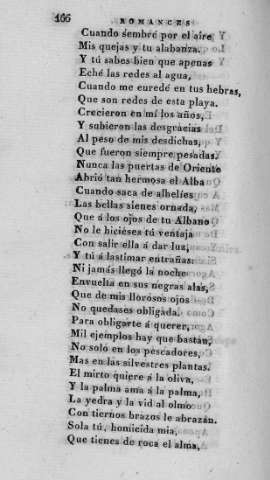 166 ROMANCES
Cuando sembré por el aire
Mis quejas y tu alabanza.
Y tú sabes bien que apenas
Eché las redes al agua,
Cuando me euredé en tus hebras,
Que son redes de esta playa.
Crecieron en mí los años,
Y subieron las desgracias
Al peso de mis desdichas,
Que fueron siempre pesadas.
Nunca las puertas de Oriente
Abrió tan hermosa el Alba
Cuando saca de alhelíes
Las bellas sienes ornada,
Que á los ojos de tu Albano
No le hicieses tú ventaja
Con salir ella á dar luz,
Y tú á lastimar entrañas.
Ni jamás llegó la noche
Envuelta en sus negras alas,
Que de mis llorosos ojos
No quedases obligada.
Para obligarte á querer,
Mil ejemplos hay que bastan,
No solo en los pescadores,
Mas en las silvestres plantas.
El mirto quiere á la oliva,
Y la palma ama á la palma,
La yedra y la vid al olmo
Con tiernos brazos le abrazan.
Sola tú, homicida mia,
Que tienes de roca el alma,